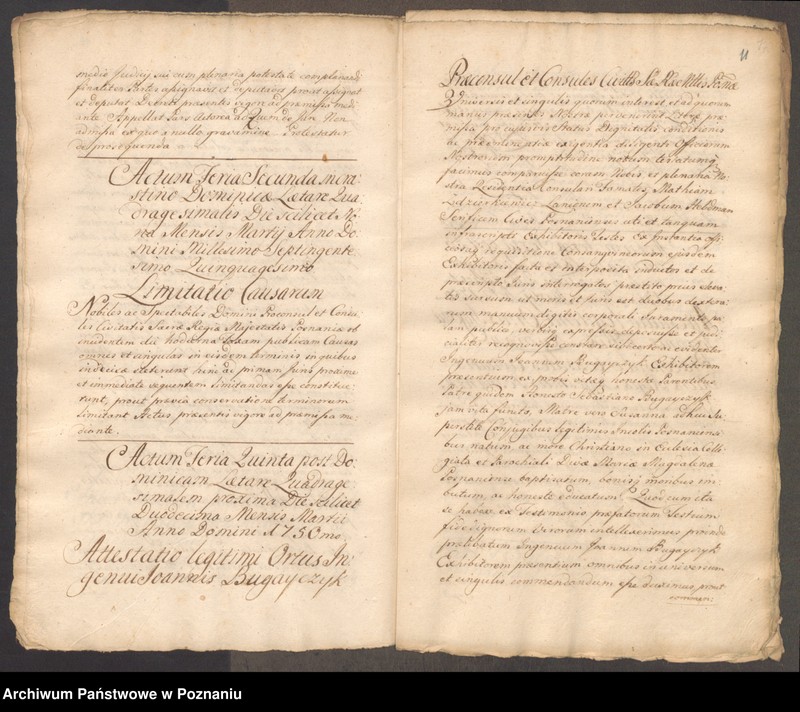 medio Judicij sui cum plenaria potestate complanandi
finaliter Partes assignavit et deputavit prout assignat
et deputat Decreti praesentis vigore ad praemissa medi-
ante Appellat Pars Actorea ad Quem de Jure Non
admissa ex quo a nullo gravamine Protestatur
de prosequenda
Actum Feria Secunda in cra-
stino Dominicae Laetare Qua-
dragesimalis Die scilicet No-
na Mensis Martij Anno Do-
mini Millesimo Septingente
simo Quinquagesimo
Limitatio Causarum
Nobiles ac Spectabiles Domini Proconsul et Consu-
les Civitatis Sacrae Regiae Majestatis Posnaniae
dum hodierna totam publicam Causas
omnes et singulas in eisdem terminis in quibus
indecisae steterunt hinc ad primam Juris proxime
et immediate sequentem limitandas esse constitue-
runt, prout praevia conservatione terminorum
limitant Actus praesentis vigore ad praemissa me-
diante.
Actum Feria Quinta post Do-
minicam Laetare Quadrage
simalem proxima Die scilicet
Duodecima Mensis Martii
Anno Domini 1750mo
Attestatio legitimi Ortus In-
genui Joannis Bugayczyk
11
Praeconsul et Consules Civittis Sae Rae Mttis Posniae
Universis et singulis quorum interest et ad quorum
manus praesentes Nostrae pervenerint Litterae prae-
missa pro cujusvis Status Dignitatis conditionis
ac praeeminentiae exigentia diligenti Officiorum
Nostrorum promptitudine notum testatumq
facimus comparuisse coram Nobis et plenaria No-
stra Residentia Consulari Famatos Mathiam
Lidziorkiewicz Lanionem et Jacobum Heldman
Serificem Cives Posnanienses uti et tanquam
infrascripti Exhibitoris Testes Ex Instantia offi-
ciosaq requisitione Consanguineorum ejusdem
Exhibitoris facta et interposita inductos et de
praescripto Juris interrogatos praestito prius Eleva-
tis sursum uti moris et Juris est duobus dextra-
rum manuum digitis corporali Juramento pa-
lam publice, verbis expressis deposuisse et judi-
cialiter recognovisse constare sibi certo ac evidenter
Ingenuum Joannem Bugayczyk Exhibitorem
praesentium ex probis vitaeq honestae Parentibus
Patre quidem Honesto Sebastiano Bugayczyk
jam vita functo, Matre vero Susanna adhuc Su-
perstite Conjugibus legitimis Incolis Posnaniensi-
bus natum, ac more Christiano in Ecclesia Colle-
giata et Parochiali Divae Mariae Magdalenae
Posnaniensi baptisatum, bonisq moribus im-
butum, ac honeste educatum. Quod cum ita
se habeat ex Testimonio praefatorum Testium
fide dignorum Virorum intellexerimus proinde
praelibatum Ingenuum Joannem Bugayczyk
Exhibitorem praesentium omnibus in universum
et singulis commendandum esse duximus, prout
commen:
Archiwum Państwowe w Poznaniu